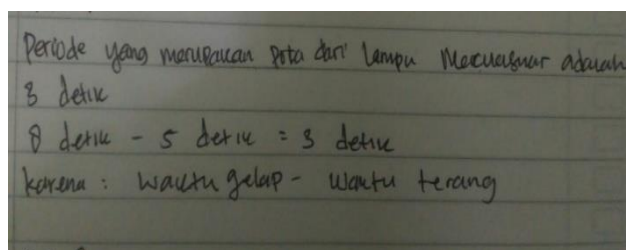 Periode yang merupakan pola dari lampu Mercusuar adalah
3 detik
8 detik - 5 detik = 3 detik
karena : waktu gelap - waktu terang